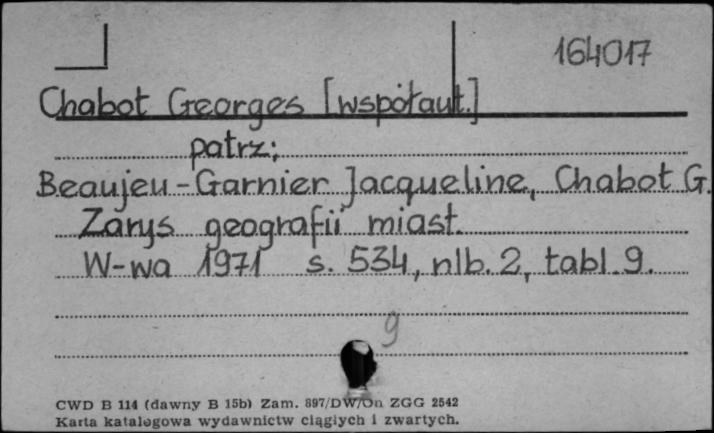 164017
Chabot Georges [współaut.]
patrz:
Beaujeu-Garnier Jacqueline, Chabot G.
Zarys geografii miast.
W-wa 1971 s. 534, nlb. 2, tabl. 9.
9
CWD B 114 (dawny B 15b) Zam. 897/DW/On ZGG 2542
Karta katalogowa wydawnictw ciągłych i zwartych.